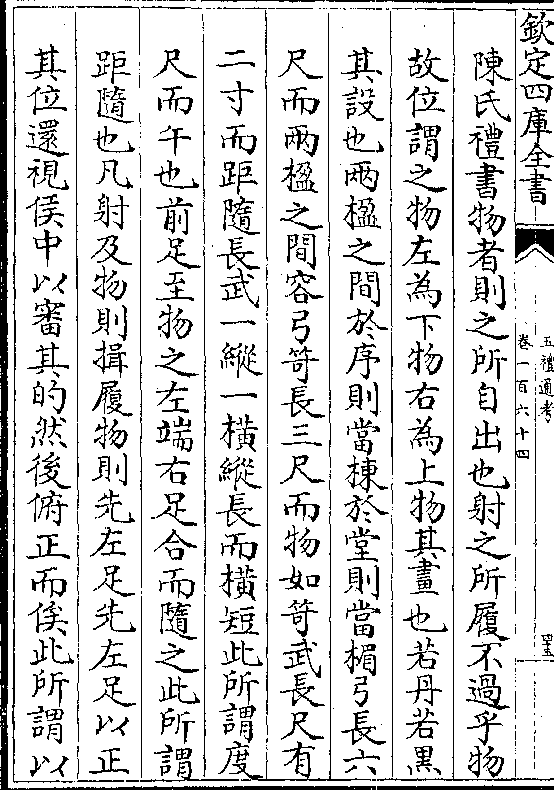 欽定四庫全書
五禮通考
卷一百六十四
陳氏禮書物者則之所自出也射之所履不過乎物
故位謂之物左為下物右為上物其畫也若丹若黑
其設也兩楹之間於序則當棟於堂則當楣弓長六
尺而兩楹之間容弓笴長三尺而物如笴武長尺有
二寸而距隨長武一縱一橫縱長而橫短此所謂度
尺而午也前足至物之左端右足合而隨之此所謂
距隨也凡射及物則揖履物則先左足先左足以正
其位還視侯中以審其的然後俯正而俟此所謂以